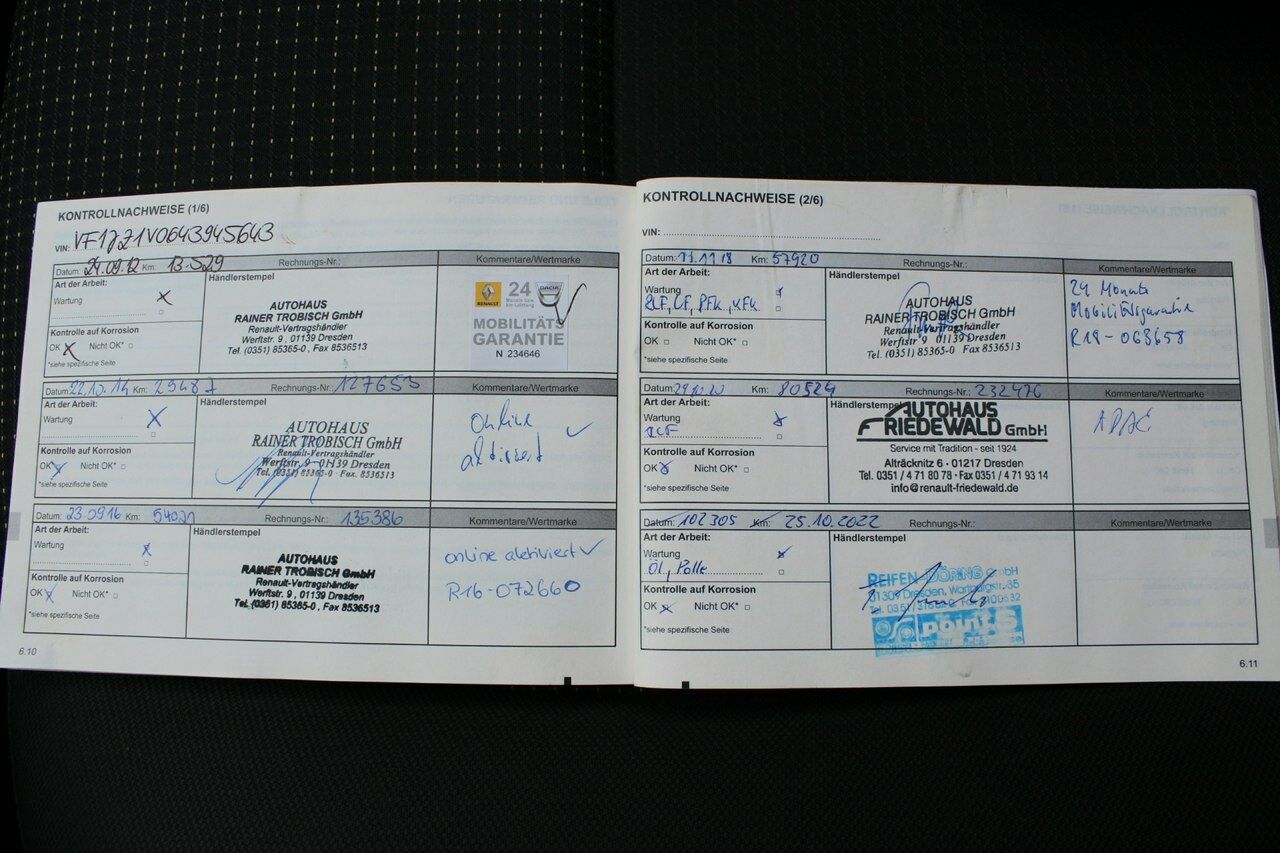 KONTROLLNACHWEISE (1/6)
VIN: VF1JZ1V0643945643
Datum: 24.09.12 Km: 13.529 Rechnungs-Nr.: Kommentare/Wertmarke
Art der Arbeit:
Wartung X
Kontrolle auf Korrosion
OK X Nicht OK*
*siehe spezifische Seite
AUTOHAUS
RAINER TROBISCH GmbH
Renault-Vertragshändler
Werftstr. 9, 01139 Dresden
Tel. (0351) 85365-0, Fax 8536513
RENAULT 24 DACIA
MOBILITÄTS
GARANTIE
N 234646
Datum: 22.10.14 Km: 29487 Rechnungs-Nr.: 127653 Kommentare/Wertmarke
Art der Arbeit:
Wartung X
Kontrolle auf Korrosion
OK X Nicht OK*
*siehe spezifische Seite
Händlerstempel
AUTOHAUS
RAINER TROBISCH GmbH
Renault-Vertragshändler
Werftstr. 9, 01139 Dresden
Tel. (0351) 85365-0 · Fax 8536513
Online
aktiviert ✓
Datum: 23.09.16 Km: 54021 Rechnungs-Nr.: 135386 Kommentare/Wertmarke
Art der Arbeit:
Wartung X
Kontrolle auf Korrosion
OK X Nicht OK*
*siehe spezifische Seite
Händlerstempel
AUTOHAUS
RAINER TROBISCH GmbH
Renault-Vertragshändler
Werftstr. 9, 01139 Dresden
Tel. (0351) 85365-0, Fax 8536513
online aktiviert ✓
R16-072660
6.10
KONTROLLNACHWEISE (2/6)
VIN:
Datum: 13.11.18 Km: 57920 Rechnungs-Nr.: Kommentare/Wertmarke
Art der Arbeit:
Wartung
Kontrolle auf Korrosion
OK Nicht OK*
*siehe spezifische Seite
Händlerstempel
AUTOHAUS
RAINER TROBISCH GmbH
Renault-Vertragshändler
Werftstr. 9, 01139 Dresden
Tel. (0351) 85365-0, Fax 8536513
24 Monate
Mobilitätsgarantie
R18-063658
Datum: 29.10.20 Km: 80524 Rechnungs-Nr.: 232476 Kommentare/Wertmarke
Art der Arbeit:
Wartung X
Kontrolle auf Korrosion
OK X Nicht OK*
*siehe spezifische Seite
Händlerstempel
AUTOHAUS
FRIEDEWALD GmbH
Service mit Tradition - seit 1924
Alträcknitz 6 · 01217 Dresden
Tel. 0351 / 4 71 80 78 · Fax 0351 / 4 71 93 14
info@renault-friedewald.de
ADAC
Datum: 102305 Km: 25.10.2022 Rechnungs-Nr.: Kommentare/Wertmarke
Art der Arbeit:
Wartung X
Öl, Polle
Kontrolle auf Korrosion
OK X Nicht OK*
*siehe spezifische Seite
Händlerstempel
REIFEN-DÖRING GmbH
01309 Dresden, Wartburgstr. 35
point S
6.11